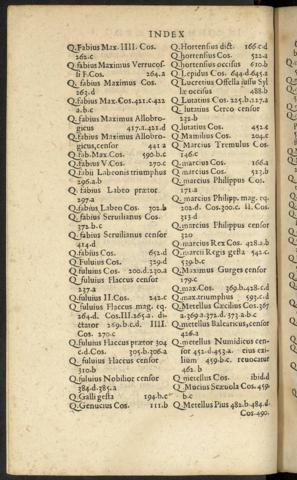 INDEX
Q. Fabius Max. IIII. Cos.
262.c
Q. fabius Maximus Verrucos-
si F. Cos. 264.a
Q. fabius Maximus Cos.
263.d
Q. fabius Max. Cos. 421.c.422
a.b.c
Q. fabius Maximus Allobro-
gicus 417.a.421.d
Q. fabius Maximus Allobro-
gicus, censor 441.a
Q. fab. Max. Cos. 590.b.c
Q. fabius V. Cos. 270.c
Q. fabii Labeonis triumphus
296.a.b
Q. fabius Labeo prætor
297.a
Q. fabius Labeo Cos. 302.b
Q. fabius Seruilianus Cos.
372.b.c
Q. fabius Seruilianus censor
414.d
Q. fabius Cos. 652.d
Q. Fuluius Cos. 359.d
Q. fuluius Cos. 200.d.230.a
Q. fuluius Flaccus censor
237.a
Q. fuluius II. Cos. 242.c
Q. fuluius Flaccus mag. eq.
264.d. Cos. III. 265.a. di-
ctator 269.b.c.d. IIII.
Cos. 270.c
Q. fuluius Flaccus prætor 304
c.d. Cos. 305.b.306.a
Q. fuluius Flaccus censor
310.b
Q. fuluius Nobilior censor
384.d.385.a
Q. Galli gesta 194.b.c
Q. Genucius Cos. 111.b
Q. Hortensius dict. 166.c.d
Q. hortensius Cos. 522.a
Q. hortensius occisus 610.b
Q. Lepidus Cos. 644.d.645.a
Q. Lucretius Ofella iussu Syl
læ occisus 488.b
Q. Lutatius Cos. 225.b.227.a
Q. lutatius Cerco censor
232.b
Q. lutatius Cos. 452.c
Q. Mamilius Cos. 204.c
Q. Marcius Tremulus Cos.
146.c
Q. marcius Cos. 166.a
Q. marcius Cos. 513.b
Q. marcius Philippus Cos.
171.a
Q. marcius Philipp. mag. eq.
202.d. Cos. 300.c. II. Cos.
313.d
Q. marcius Philippus censor
320
Q. marcius Rex Cos. 428.a.b
Q. marcii Regis gesta 542.c.
539.b.c
Q. Maximus Gurges censor
179.c
Q. max. Cos. 369.b.428.c.d
Q. max. triumphus 593.c.d
Q. Metellus Cæcilius Cos. 367
a.369.a.372.d.373.a.b.c
Q. metellus Balearicus, censor
426.a
Q. metellus Numidicus cen-
sor 452.d.453.a. eius exi-
lium 459.b.c. reuocatur
462.b
Q. metellus Cos. ibid.d
Q. Mucius Scæuola Cos. 459.
b.c
Q. Metellus Pius 482.b.484.d.
Cos. 490.